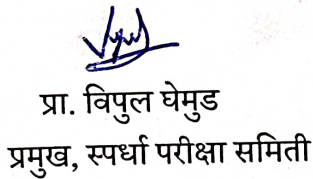 प्रा. विपुल घेमुड
प्रमुख, स्पर्धा परीक्षा समिती